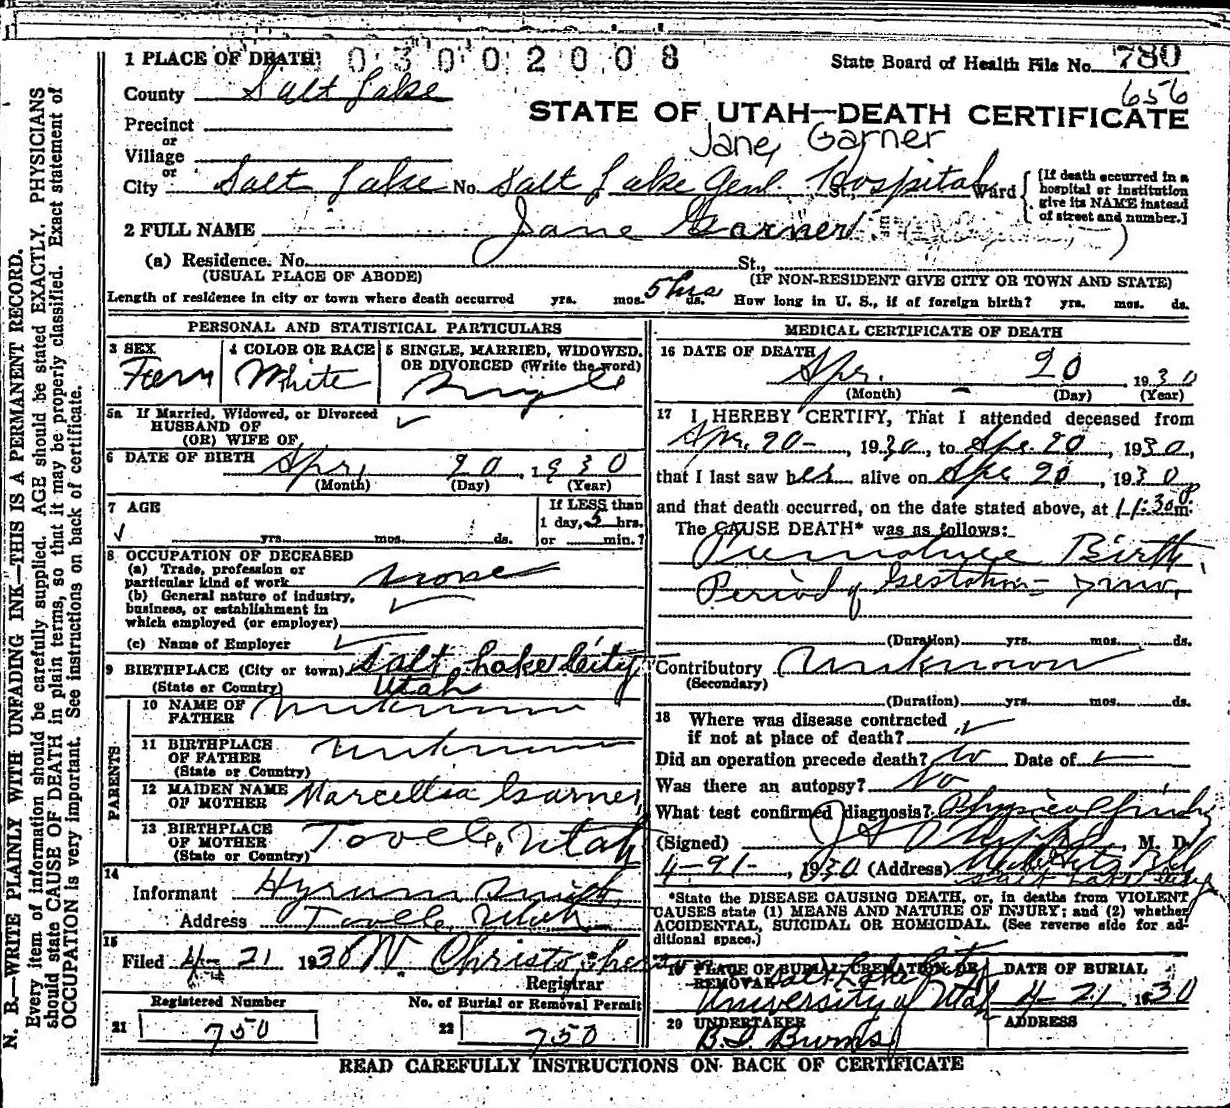 1 PLACE OF DEATH 03002008
State Board of Health File No. 780
County Salt Lake
656
STATE OF UTAH—DEATH CERTIFICATE
Precinct
or
Village
Jane Garner
or
City Salt Lake No. Salt Lake Genl. Hospital St., Ward
[If death occurred in a hospital or institution give its NAME instead of street and number.]
2 FULL NAME Jane Garner
(a) Residence. No. St.,
(USUAL PLACE OF ABODE) (IF NON-RESIDENT GIVE CITY OR TOWN AND STATE)
Length of residence in city or town where death occurred yrs. mos. 5 hrs ds. How long in U. S., if of foreign birth? yrs. mos. ds.
PERSONAL AND STATISTICAL PARTICULARS
3 SEX Fem
4 COLOR OR RACE White
5 SINGLE, MARRIED, WIDOWED, OR DIVORCED (Write the word) Single
5a If Married, Widowed, or Divorced
HUSBAND OF
(OR) WIFE OF
6 DATE OF BIRTH Apr. 20 1930
(Month) (Day) (Year)
7 AGE
yrs. mos. ds.
If LESS than
1 day, 5 hrs.
or min.?
8 OCCUPATION OF DECEASED
(a) Trade, profession or
particular kind of work none
(b) General nature of industry,
business, or establishment in
which employed (or employer)
(c) Name of Employer
9 BIRTHPLACE (City or town) Salt Lake City
(State or Country) Utah
PARENTS
10 NAME OF
FATHER unknown
11 BIRTHPLACE
OF FATHER unknown
(State or Country)
12 MAIDEN NAME
OF MOTHER Marcellia Garner
13 BIRTHPLACE
OF MOTHER Tooele, Utah
(State or Country)
14
Informant Hyrum
Address Tooele, Utah
15
Filed 4-21 1930 W. Christopherson
Registrar
Registered Number
21 750
No. of Burial or Removal Permit
22 750
MEDICAL CERTIFICATE OF DEATH
16 DATE OF DEATH Apr. 20, 1930
(Month) (Day) (Year)
17 I HEREBY CERTIFY, That I attended deceased from
Apr. 20-, 1930, to Apr. 20, 1930,
that I last saw her alive on Apr 20, 1930
and that death occurred, on the date stated above, at 11:30 p m.
The CAUSE DEATH* was as follows:
Premature Birth
Period of Gestation - 7 mo.
(Duration) yrs. mos. ds.
Contributory Unknown
(Secondary)
(Duration) yrs. mos. ds.
18 Where was disease contracted
if not at place of death?
Did an operation precede death? No Date of
Was there an autopsy? No
What test confirmed diagnosis? Physical
(Signed) M. D.
4-21-, 1930 (Address)
Salt Lake City
*State the DISEASE CAUSING DEATH, or, in deaths from VIOLENT
CAUSES state (1) MEANS AND NATURE OF INJURY; and (2) whether
ACCIDENTAL, SUICIDAL OR HOMICIDAL. (See reverse side for additional space.)
19 PLACE OF BURIAL, CREMATION OR
REMOVAL Salt Lake City
University of Utah
DATE OF BURIAL
4-21 1930
20 UNDERTAKER
ADDRESS
READ CAREFULLY INSTRUCTIONS ON BACK OF CERTIFICATE
N. B.—WRITE PLAINLY WITH UNFADING INK—THIS IS A PERMANENT RECORD.
Every item of information should be carefully supplied. AGE should be stated EXACTLY. PHYSICIANS
should state CAUSE OF DEATH in plain terms, so that it may be properly classified. Exact statement of
OCCUPATION is very important. See instructions on back of certificate.